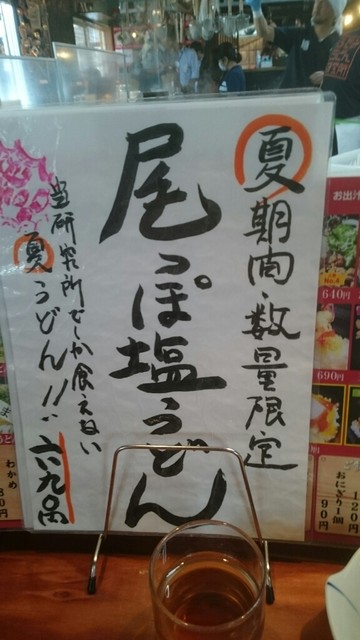 夏期間・数量限定
尾っぽ塩うどん
当研究所でしか食えない
夏うどん!!
六九〇円
お出汁
640円
690円
おにぎり1個
120円
90円
わかめ